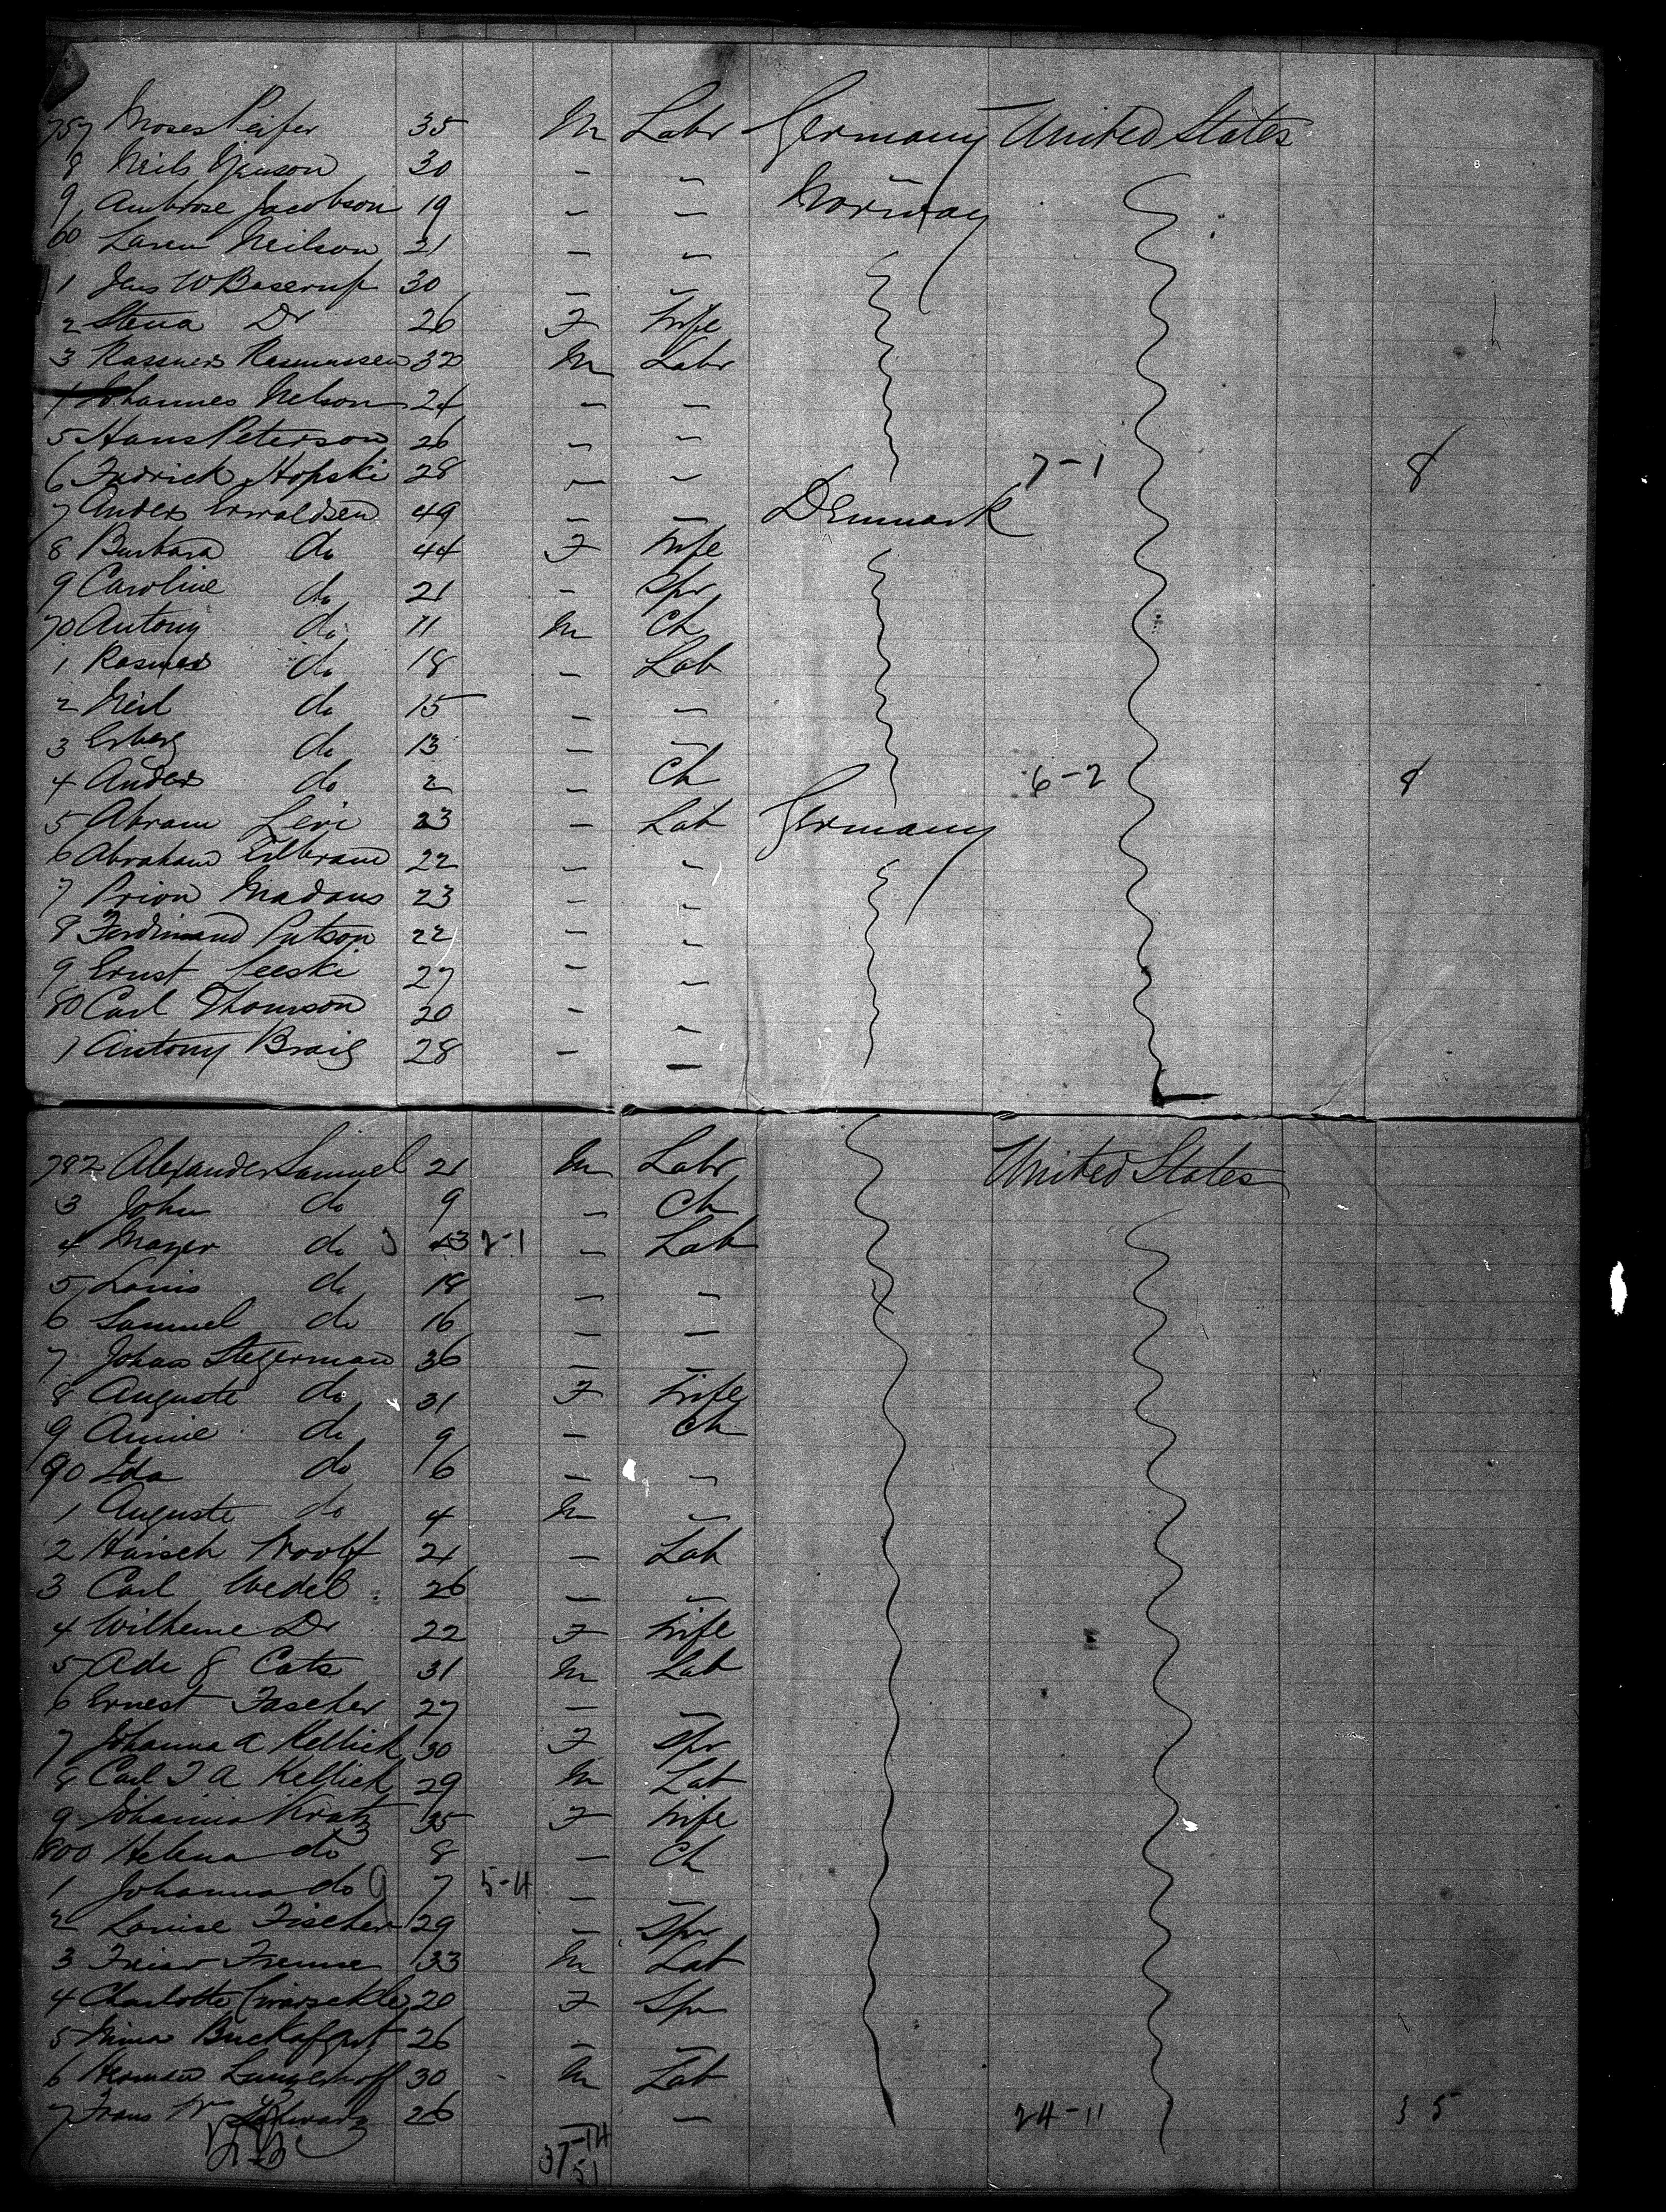 757 Moses Peifer 35 M Labr Germany United States
8 Neils 30 - -
9 Ambrose Jacobson 19 - - Norway
60 Laren Neilson 21 - -
1 Jens W Boserup 30 - -
2 Stena Do 26 F Wife
3 Rasmus Rasmussen 32 M Labr
4 Johannes Nelson 24 - -
5 Hans Peterson 26 - -
6 Fredrick Hopski 28 - - 7-1 8
7 Anders 49 - - Denmark
8 Barbara do 44 F Wife
9 Caroline do 21 - Spr
70 Antony do 11 M Ch
1 Rasmus do 18 - Lab
2 Neil do 15 - -
3 do 13 - -
4 Ander do 2 - Ch 6-2 8
5 Abram Levi 23 - Lab Germany
6 Abraham 22 - -
7 Prion Madaus 23 - -
8 Ferdinand Putson 22 - -
9 Ernst 27 - -
80 Carl Thomson 20 - -
1 Antony Braig 28 - -
782 Alexander Samuel 21 M Labr United States
3 John do 9 - Ch
4 Mayer do 2-1 - Lab
5 Louis do 18 - -
6 Samuel do 16 - -
7 Johan Stegerman 36 - -
8 Auguste do 31 F Wife
9 Annie do 9 - Ch
90 Ida do 6 - -
1 Auguste do 4 M -
2 Hirsch Woolf 21 - Lab
3 Carl Wedel 26 - -
4 Wilheme Do 22 F Wife
5 Ade 31 M Lab
6 Ernest Fascher 27 - -
7 Johanna A Kellick 30 F Spr
8 Carl F A Kellick 29 M Lab
9 Johanna Kratz 35 F Wife
800 Helena do 8 - Ch
1 Johanna do 7 5-4 - -
2 Louise Fischer 29 - Spr
3 33 M Lab
4 Charlotte 20 F Spr
5 Mina 26 - -
6 Herman Langerhoff 30 M Lab
7 Frans Wm Schwarz 26 - - 24-11 35
37-14
51